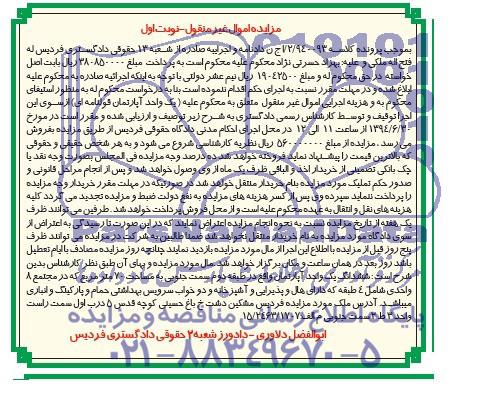 مزایده اموال غیر منقول-نوبت اول
بموجب پرونده کلاسه ۲/۹۴۰۰۹۳/ا ج ن دادنامه و اجراییه صادره از شعبه ۱۳ حقوقی دادگستری فردیس له
فتح اله ملکی و علیه: بهزاد حسرتی نژاد محکوم علیه محکوم است به پرداخت مبلغ ۳۸۰۸۵۰۰۰۰ ریال بابت اصل
خواسته در حق محکوم له و مبلغ ۱۹۰۴۲۵۰۰ ریال نیم عشر دولتی با توجه به اینکه اجرائیه صادره به محکوم علیه
ابلاغ شده و در مهلت مقرر نسبت به اجرای حکم اقدام ننموده است بنا به درخواست محکوم له به منظور استیفای
محکوم به و هزینه اجرایی اموال غیر منقول متعلق به محکوم علیه (یک واحد آپارتمان قولنامه ای) از سوی این
اجرا توقیف و توسط کارشناس رسمی دادگستری به شرح زیر توصیف و ارزیابی شده و مقرر است در مورخ
از ساعت ۱۱ الی ۱۲ در محل اجرای احکام مدنی دادگاه حقوقی فردیس از طریق مزایده بفروش
می رسد. مزایده از مبلغ ۵۶۰۰۰۰۰۰۰ ریال نظریه کارشناسی شروع می شود و به هر شخص حقیقی و حقوقی
که بالاترین قیمت را پیشنهاد نماید فروخته خواهد شد ده درصد وجه مزایده فی المجلس بصورت وجه نقد یا
چک بانکی تضمینی از خریدار اخذ و الباقی ظرف یک ماه از وی وصول خواهد شد و پس از انجام مراحل قانونی و
صدور حکم تملیک مورد مزایده بنام خریدار منتقل خواهد شد در صورتیکه در مهلت مقرر خریدار وجه مزایده
را پرداخت ننماید سپرده وی پس از کسر هزینه های مزایده به نفع دولت ضبط و مزایده تجدید می گردد کلیه
هزینه های نقل و انتقال به عهده محکوم علیه است و از محل فروش پرداخت خواهد شد. طرفین می توانند ظرف
یک هفته از تاریخ مزایده نسبت به نحوه انجام مزایده اعتراض نمایند که در این صورت تا رسیدگی به اعتراض از
سوی دادگاه مورد مزایده به نام خریدار منتقل نخواهد شد ضمنا طالبین به شرکت در مزایده می توانند ظرف
پنج روز قبل از مزایده با اطلاع این اجرا از مال مورد مزایده بازدید نمایند چنانچه روز مزایده مصادف با ایام تعطیل
باشد روز بعد در همان ساعت و مکان برگزار خواهد شد. مال مورد مزایده و بهای آن طبق نظر کارشناس بدین
شرح است: ششدانگ یک واحد آپارتمان واقع در طبقه دوم سمت جنوبی به مساحت ۷۰ متر مربع که در مجتمع ۸
واحدی شامل ۴ طبقه که دارای هال و پذیرایی و آشپزخانه و دو خواب سرویس بهداشتی حمام و پارکینگ و انباری
میباشد. آدرس ملک مورد مزایده فردیس مشکین دشت خ باغ حسینی کوچه قدس ۵ درب اول سمت راست
واحد ۳ ط ۲ سمت جنوبی
ابوالفضل دلاوری -دادورز شعبه۲ حقوقی دادگستری فردیس
پایگاه اطلاع رسانی مناقصه و مزایده
۰۲۱-۸۸۳۴۹۶۷۰-۵